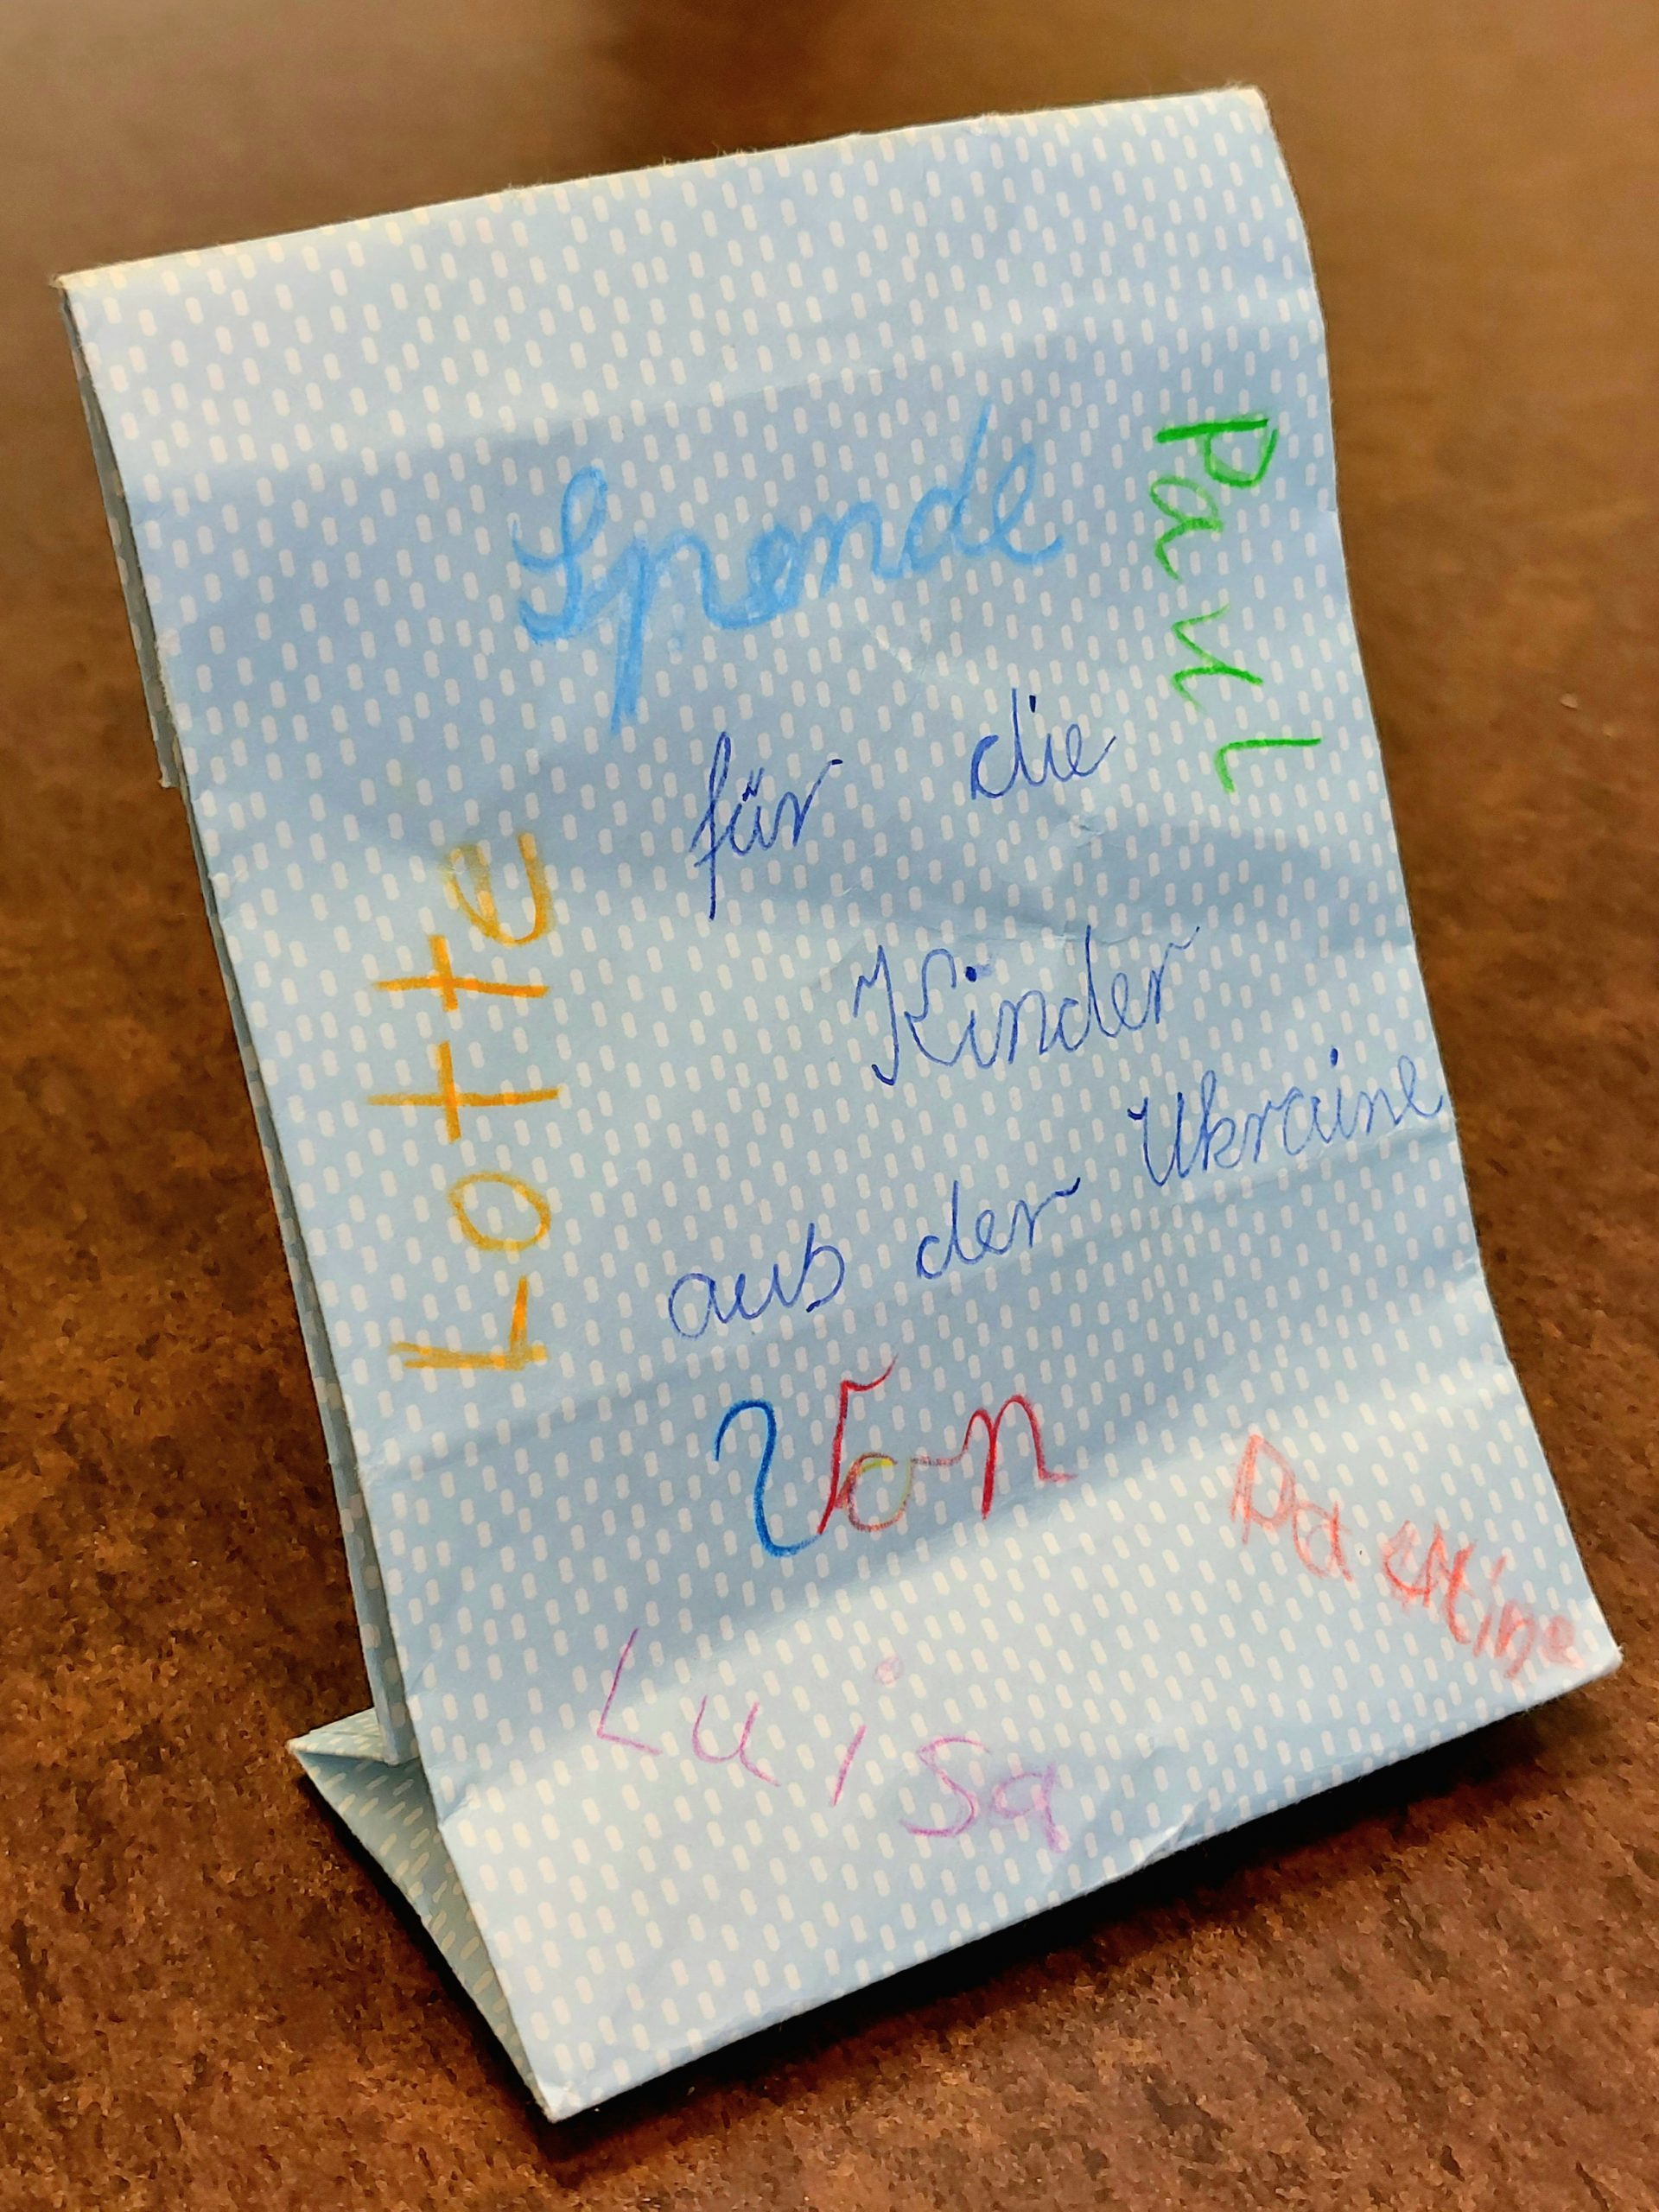 Spende
Paul
für die
Kinder
aus der Ukraine
Lotte
Von
Pauline
Luisa